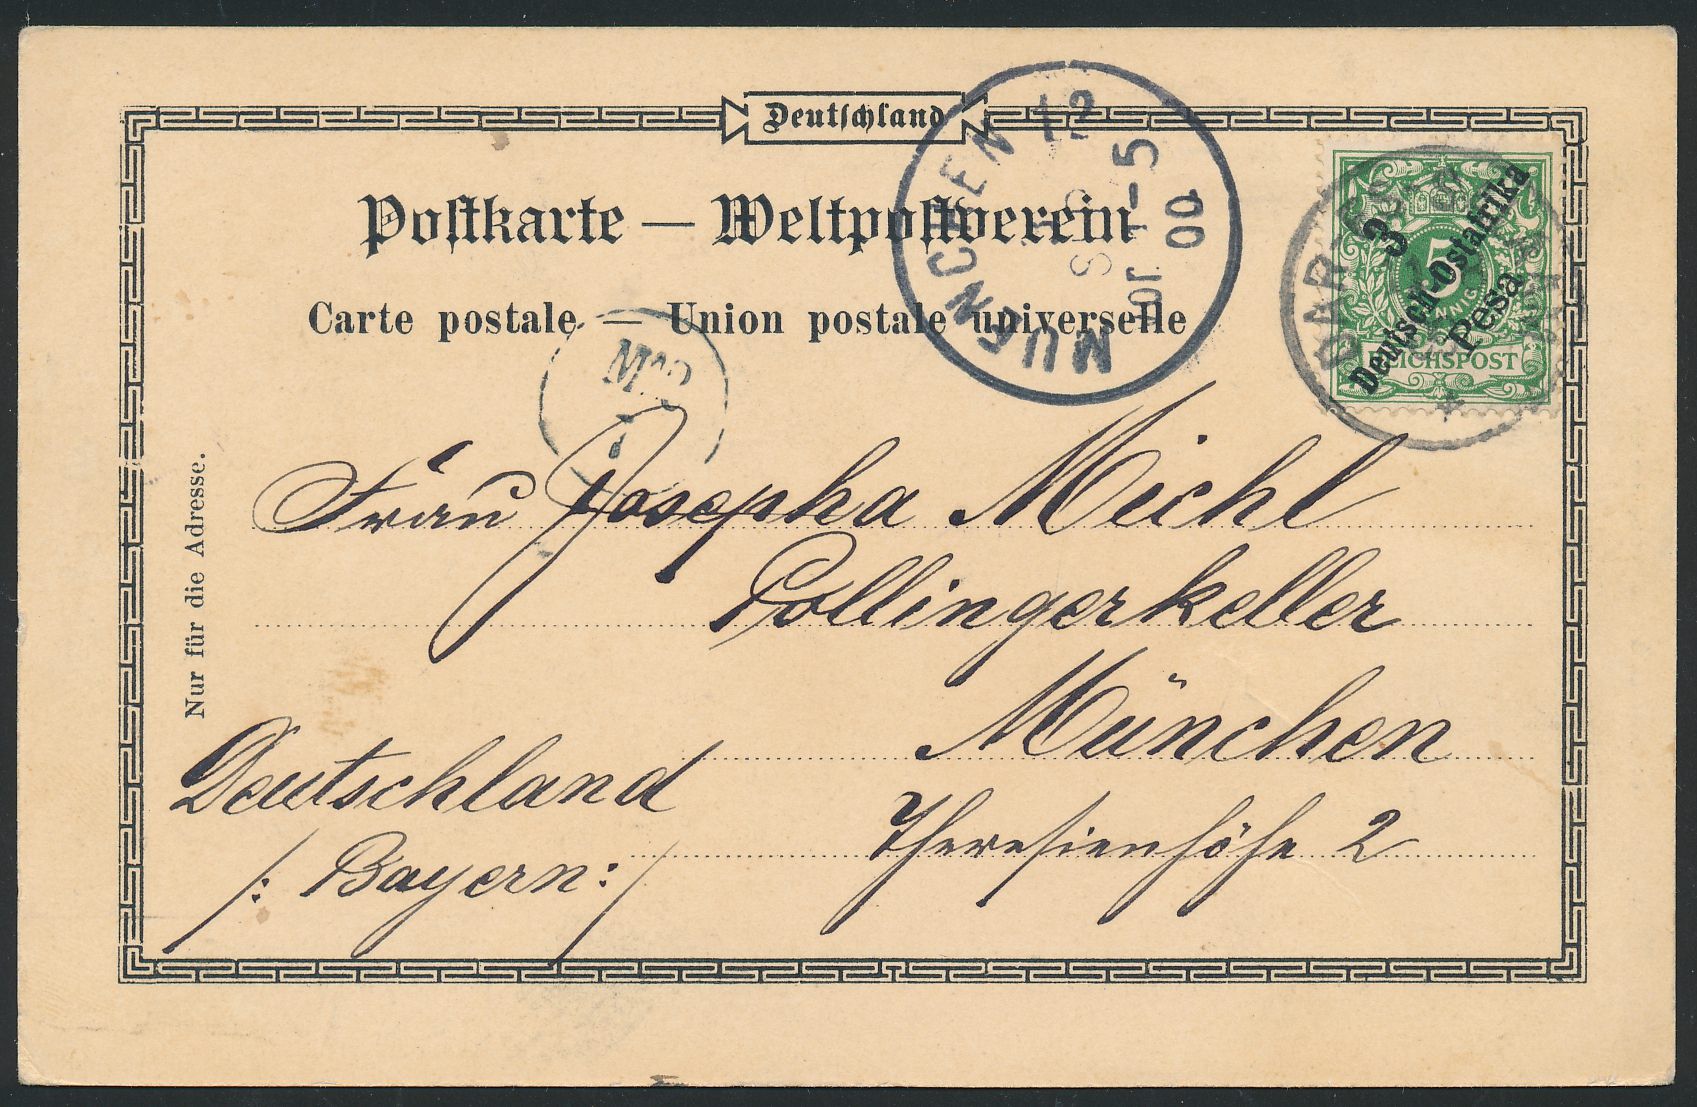 Deutschland
Postkarte — Weltpostverein
Carte postale — Union postale universelle
Nur für die Adresse.
MUENCHEN 12
4-5
00
DAR-ES
3
Deutsch-Ostafrika
Pesa
5
REICHSPOST
Frau Josepha Michl
Pollingerkeller
München
Theresienhöhe 2
Deutschland
/: Bayern :/